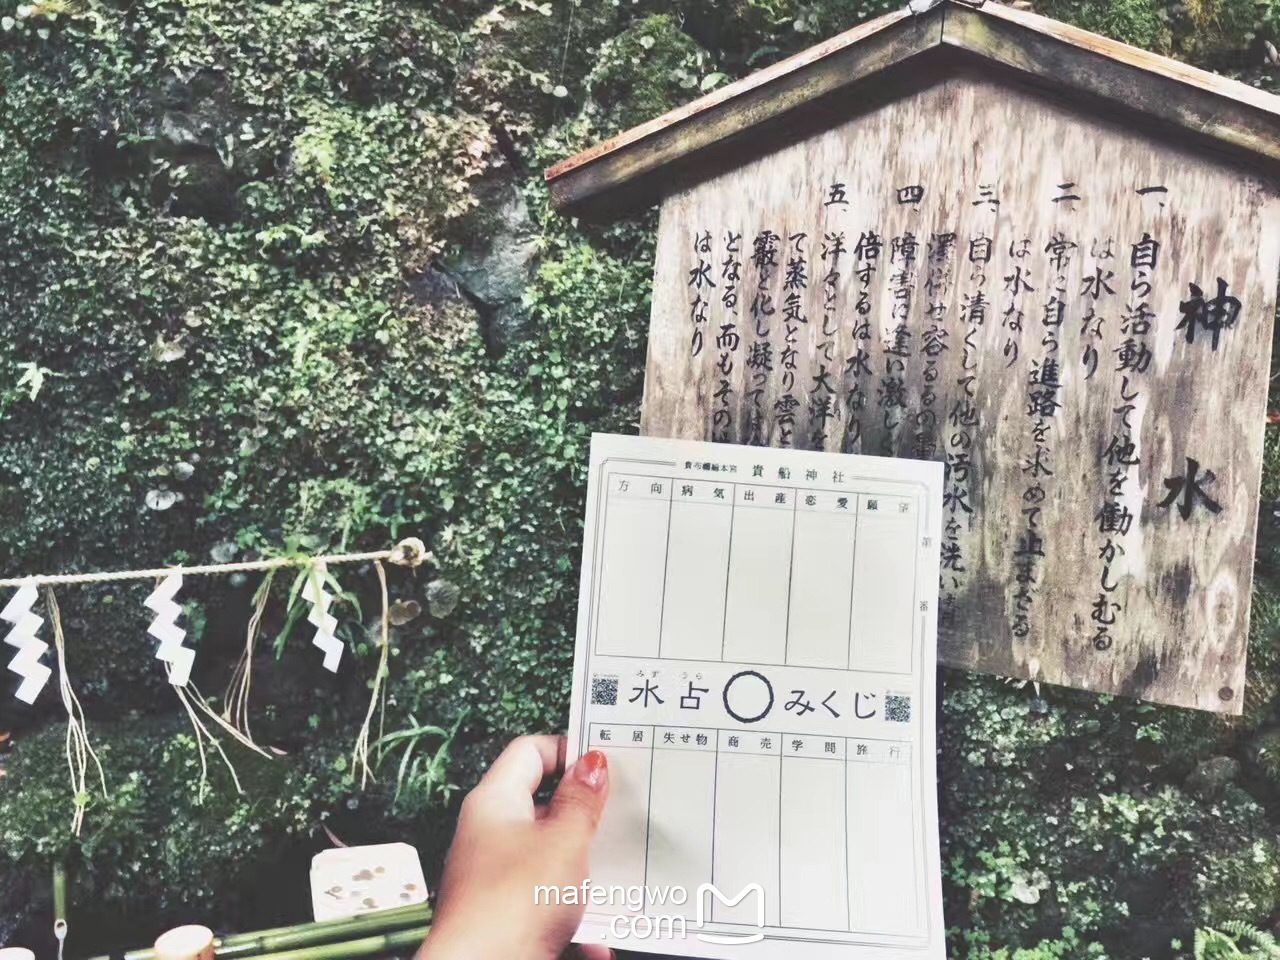 神水
一、自ら活動して他を働かしむる
は水なり
二、常に自ら進路を求めて止まざる
は水なり
三、自ら清くして他の汚水を洗い
せ容るるの
四、障害に逢い激し
倍するは水なり
五、洋々として大洋を
て蒸気となり雲と
霰と化し凝っては
となる、而もその
は水なり
貴布禰総本宮 貴船神社
方向 病気 出産 恋愛 願望
第 番
みず うら
水占 みくじ
転居 失せ物 商売 学問 旅行
mafengwo
.com